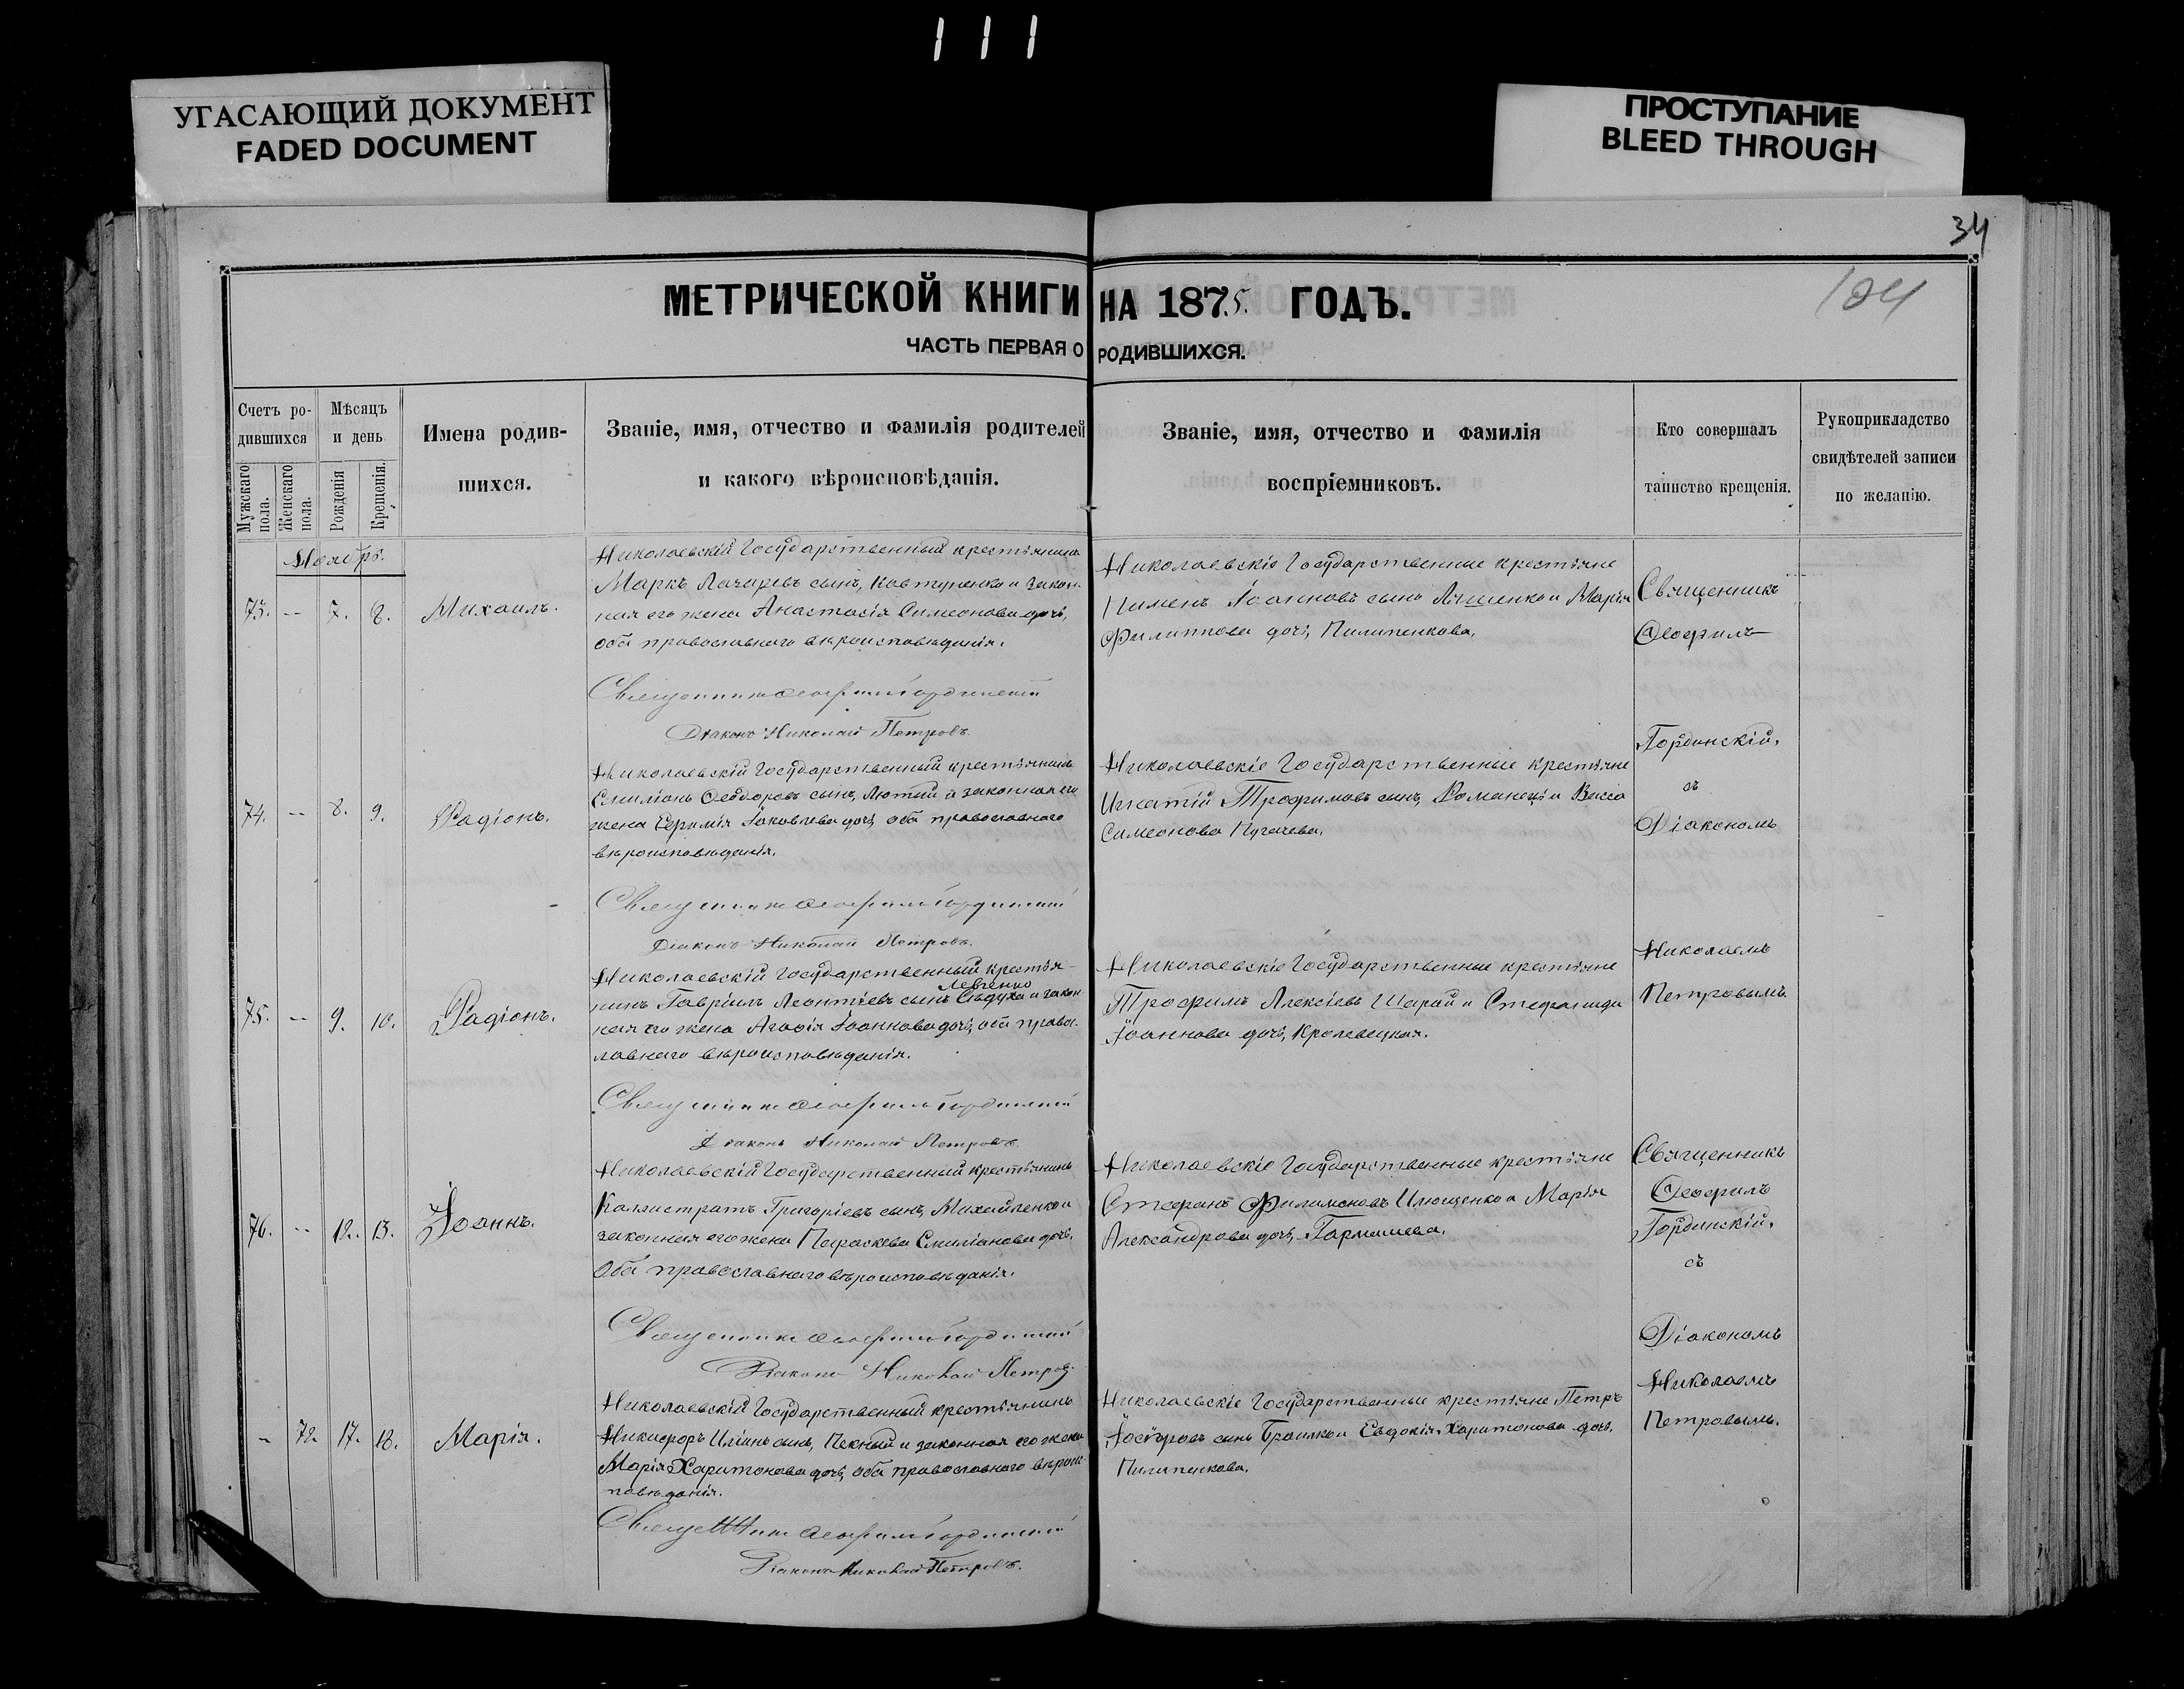 111
УГАСАЮЩИЙ ДОКУМЕНТ
FADED DOCUMENT
ПРОСТУПАНИЕ
BLEED THROUGH
34
104
МЕТРИЧЕСКОЙ КНИГИ НА 1875. ГОДЪ.
ЧАСТЬ ПЕРВАЯ О РОДИВШИХСЯ.
Счетъ ро-
дившихся
Мужскаго
пола.
Женскаго
пола.
Мѣсяцъ
и день
Рожденія
Крещенія.
Имена родив-
шихся.
Званіе, имя, отчество и фамилія родителей
и какого вѣроисповѣданія.
Званіе, имя, отчество и фамилія
воспріемниковъ.
Кто совершалъ
таинство крещенія.
Рукоприкладство
свидѣтелей записи
по желанію.
Ноябрь.
73. -- 7. 8. Михаилъ.
Николаевскій Государственный крестьянинъ
Маркъ Лазаревъ сынъ, Ковтуненко и закон-
ная его жена Анастасія Симеонова дочь,
оба православнаго вѣроисповѣданія.
Священникъ Ѳеофилъ Гординскій
Діаконъ Николай Петровъ.
Николаевскіе Государственные крестьяне
Пименъ Іоанновъ сынъ Ляшенко и Марія
Филиппова дочь, Пилипенкова.
Священникъ
Ѳеофилъ
Гординскій.
съ
Діакономъ
Николаемъ
Петровымъ
74. -- 8. 9. Радіонъ.
Николаевскій Государственный крестьянинъ
Емиліанъ Ѳеодоровъ сынъ, Лютый и законная его
жена Еѵфимія Іаковлева дочь, оба православнаго
вѣроисповѣданія.
Священникъ Ѳеофилъ Гординскій
Діаконъ Николай Петровъ.
Николаевскіе Государственные крестьяне
Игнатій Трофимовъ сынъ, Романецъ и Васса
Симеонова Пугачева.
75. -- 9. 10. Радіонъ.
Николаевскій Государственный крестья-
Левченко
нинъ Гавріилъ Леонтіевъ сынъ и закон
ная его жена Агафія Іоаннова дочь, оба правос-
лавнаго вѣроисповѣданія.
Священникъ Ѳеофилъ Гординскій
Діаконъ Николай Петровъ.
Николаевскіе Государственные крестьяне
Трофимъ Алексіевъ Шарай и Стефанида
Іоаннова дочь, Кролевецкая.
76. -- 12. 13. Іоаннъ.
Николаевскій Государственный крестьянинъ
Каллистратъ Григоріевъ сынъ, Михайленко и
законная его жена Параскева Емиліанова дочь,
Оба православнаго вѣроисповѣданія.
Священникъ Ѳеофилъ Гординскій
Діаконъ Николай Петровъ.
Николаевскіе Государственные крестьяне
Стефанъ Филимоновъ Илющенко и Марія
Александрова дочь, Гармашева.
Священникъ
Ѳеофилъ
Гординскій.
съ
Діакономъ
Николаемъ
Петровымъ.
- 72. 17. 18. Марія.
Николаевскій Государственный крестьянинъ
Никифоръ Иліинъ сынъ, Пекный и законная его жена
Марія Харитонова дочь, оба православнаго вѣроис-
повѣданія.
Священникъ Ѳеофилъ Гординскій
Діаконъ Николай Петровъ.
Николаевскіе Государственные крестьяне Петръ
сынъ Браилко и Евдокія Харитонова дочь,
Пилипенкова.